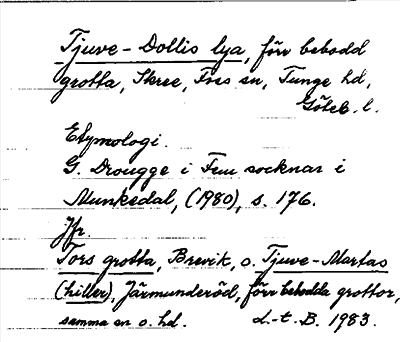 Tjuve-Dollis lya, förr bebodd
grotta, Skree, Foss sn, Tunge hd,
Göteb. l.
Etymologi.
G. Drougge i Fem socknar i
Munkedal, (1980), s. 176.
Jfr.
Tors grotta, Brevik, o. Tjuve-Martas
(hiller), Järmunderöd, förr bebodda grottor,
samma sn o. hd. L-t. B. 1983.